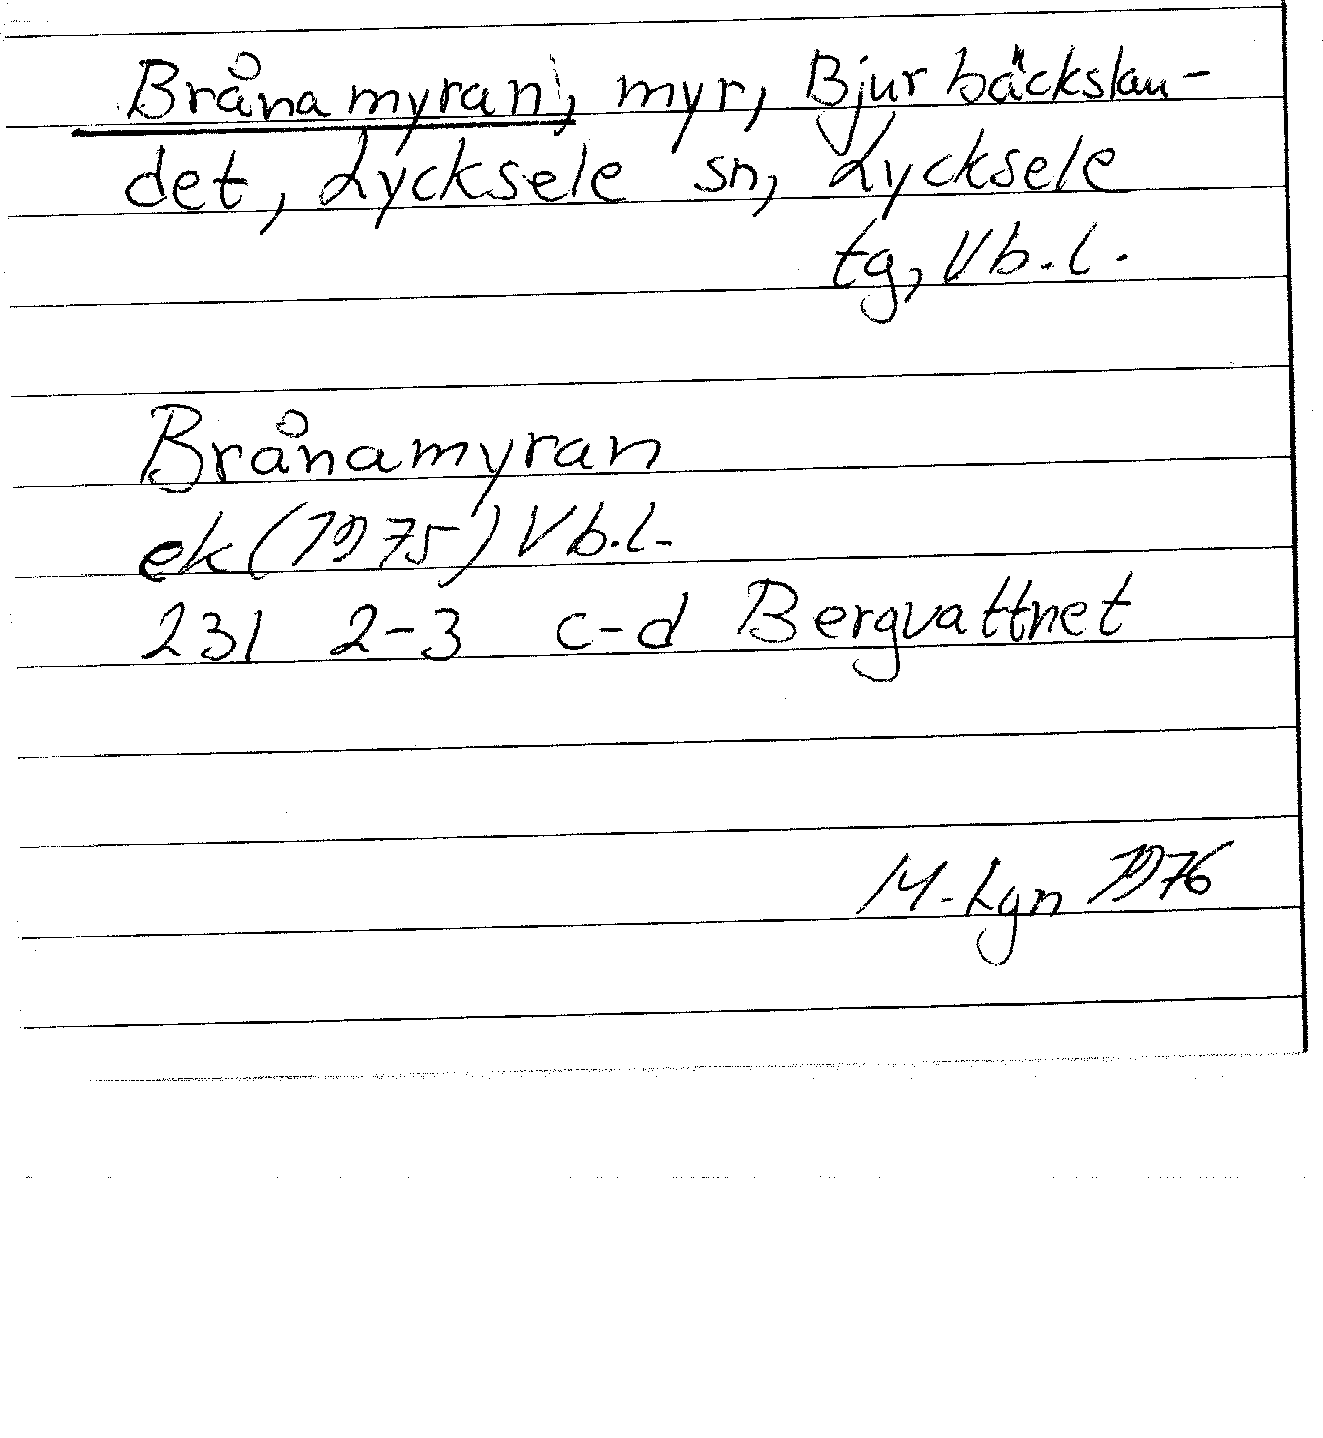 Brånamyran, myr, Bjurbäckslan-
det, Lycksele sn, Lycksele
tg, Vb.l.
Brånamyran
ek (1975) Vb.l.
231 2-3 c-d Bergvattnet
M-Lgn 1976